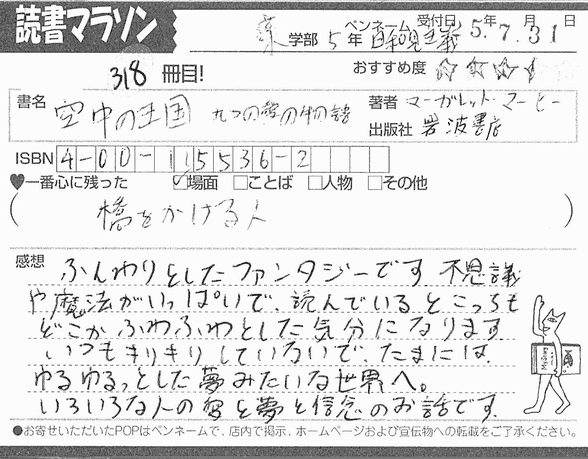 読書マラソン
薬学部 5年 ペンネーム 自動児童主義 受付日 5年7月31日
318冊目!
おすすめ度 ☆☆☆
書名 空中の王国 九つの空の物語
著者 マーガレット・マーヒー
出版社 岩波書店
ISBN 4-00-115536-2
♥一番心に残った ☑場面 □ことば □人物 □その他
(橋をかける人)
感想 ふんわりとしたファンタジーです 不思議
や魔法がいっぱいで、読んでいるとこっちも
どこかふわふわとした気分になります
いつもきりきりしていないで、たまには
ゆるゆるっとした夢みたいな世界へ。
いろいろな人の愛と夢と信念のお話です
●お寄せいただいたPOPはペンネームで、店内で掲示、ホームページおよび宣伝物への転載をご了承ください。